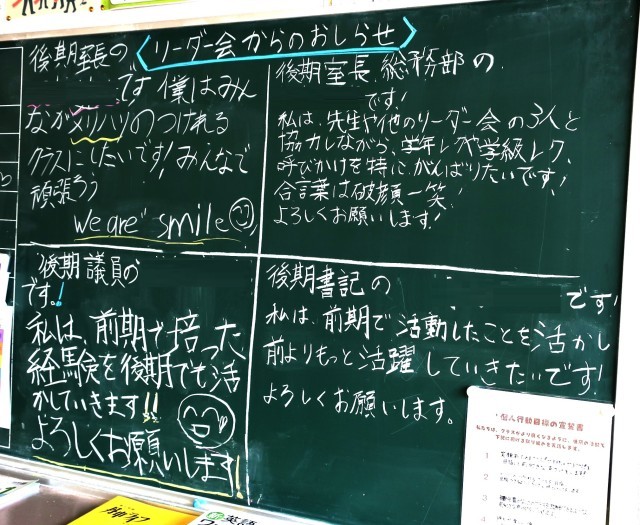 〈リーダー会からのおしらせ〉
後期室長の
です 僕はみん
ながメリハリのつけれる
クラスにしたいです! みんなで
頑張ろう
we are smile
後期室長、総務部の
です!
私は、先生や他のリーダー会の3人と
協力しながら、学年レクや学級レク、
呼びかけを特にがんばりたいです!
合言葉は破顔一笑!
よろしくお願いします!
後期議員の
です!
私は、前期で培った
経験を後期でも活
かしていきます!!
よろしくお願いします!!
後期書記の
です!
私は、前期で活動したことを活かし
前よりもっと活躍していきたいです!
よろしくお願いします。
個人行動目標の宣誓書
1
2
3
4
英語